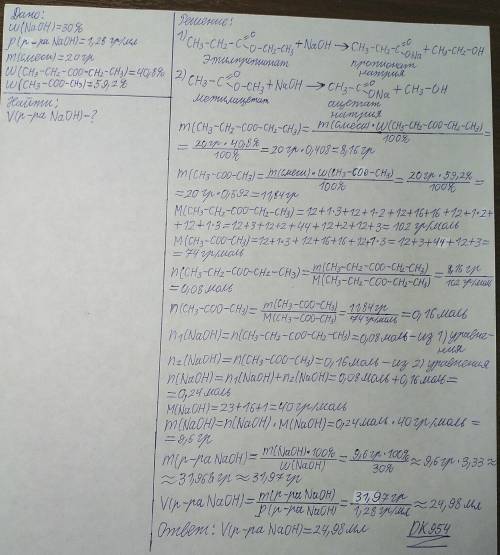 Дано:
w(NaOH)=30%
ρ(р-ра NaOH)=1,28 гр/мл
m(смеси)=20гр
w(CH₃-CH₂-COO-CH₂-CH₃)=40,8%
w(CH₃-COO-CH₃)=59,2%
Найти:
V(р-ра NaOH)-?
Решение:
1) CH₃-CH₂-C(=O)O-CH₂-CH₃+NaOH→CH₃-CH₂-C(=O)ONa+CH₃-CH₂-OH
Этилпропионат пропионат
натрия
2) CH₃-C(=O)O-CH₃+NaOH→CH₃-C(=O)ONa+CH₃-OH
метилацетат ацетат
натрия
m(CH₃-CH₂-COO-CH₂-CH₃)=m(смеси)·w(CH₃-CH₂-COO-CH₂-CH₃)/100%=
=20гр·40,8%/100%=20гр·0,408=8,16гр
m(CH₃-COO-CH₃)=m(смеси)·w(CH₃-COO-CH₃)/100%=20гр·59,2%/100%=
=20гр·0,592=11,84гр
M(CH₃-CH₂-COO-CH₂-CH₃)=12+1·3+12+1·2+12+16+16+12+1·2+
+12+1·3=12+3+12+2+44+12+2+12+3=102 гр/моль
M(CH₃-COO-CH₃)=12+1·3+12+16+16+12+1·3=12+3+44+12+3=
=74гр/моль
n(CH₃-CH₂-COO-CH₂-CH₃)=m(CH₃-CH₂-COO-CH₂-CH₃)/M(CH₃-CH₂-COO-CH₂-CH₃)=8,16гр/102 гр/моль=
=0,08моль
n(CH₃-COO-CH₃)=m(CH₃-COO-CH₃)/M(CH₃-COO-CH₃)=11,84гр/74 гр/моль=0,16моль
n₁(NaOH)=n(CH₃-CH₂-COO-CH₂-CH₃)=0,08моль-из 1) уравне-
ния
n₂(NaOH)=n(CH₃-COO-CH₃)=0,16моль-из 2) уравнения
n(NaOH)=n₁(NaOH)+n₂(NaOH)=0,08моль+0,16моль=
=0,24моль
M(NaOH)=23+16+1=40гр/моль
m(NaOH)=n(NaOH)·M(NaOH)=0,24моль·40гр/моль=
=9,6гр
m(р-ра NaOH)=m(NaOH)·100%/w(NaOH)=9,6гр·100%/30%≈9,6гр·3,33≈
≈31,968гр≈31,97гр
V(р-ра NaOH)=m(р-ра NaOH)/ρ(р-ра NaOH)=31,97гр/1,28гр/мл≈24,98мл
Ответ: V(р-ра NaOH)=24,98мл DK954